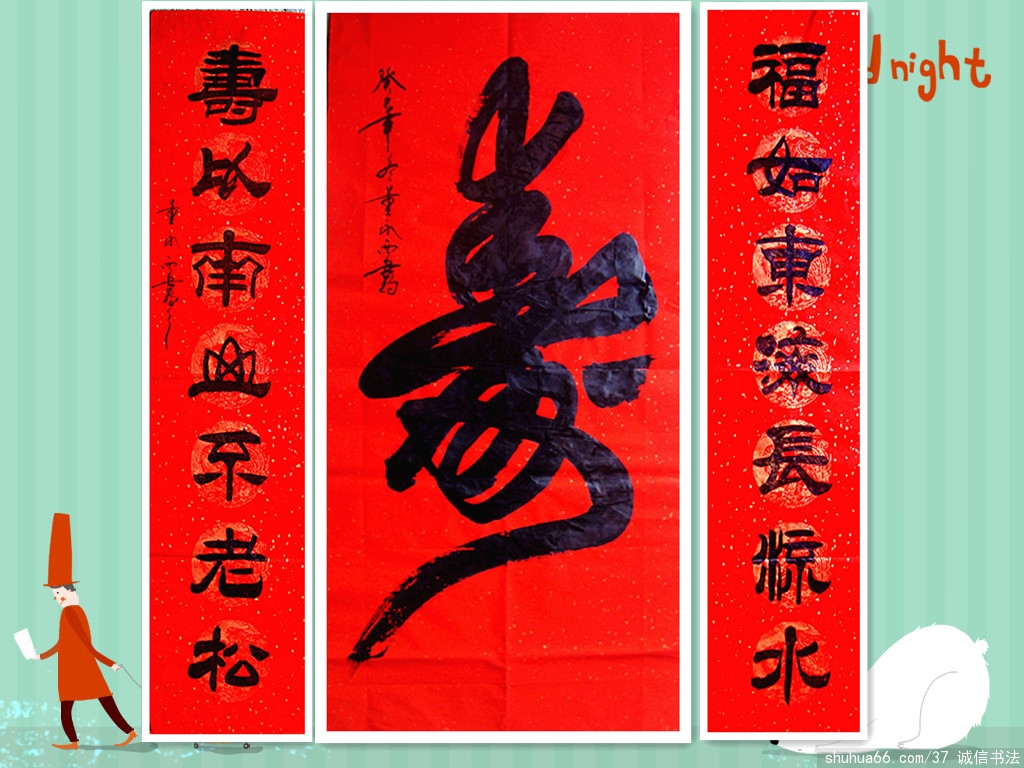 福如東海長流水
壽
壽比南山不老松
night
shuhua66.com/37 诚信书法